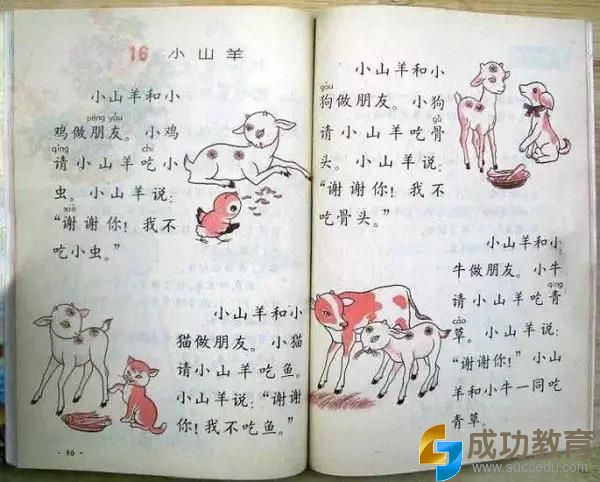 16 小山羊
小山羊和小
péng yǒu
鸡做朋友。小鸡
qǐng chī
请小山羊吃小
虫。小山羊说:
xiè
“谢谢你!我不
吃小虫。”
小山羊和小
猫做朋友。小猫
请小山羊吃鱼。
小山羊说:“谢谢
你!我不吃鱼。”
·90·
小山羊和小
gǒu
狗做朋友。小狗
gǔ
请小山羊吃骨
头。小山羊说:
“谢谢你!我不
吃骨头。”
小山羊和小
牛做朋友。小牛
qīng
请小山羊吃青
cǎo
草。小山羊说:
“谢谢你!”小山
羊和小牛一同吃
青草。
成功教育
www.succedu.com